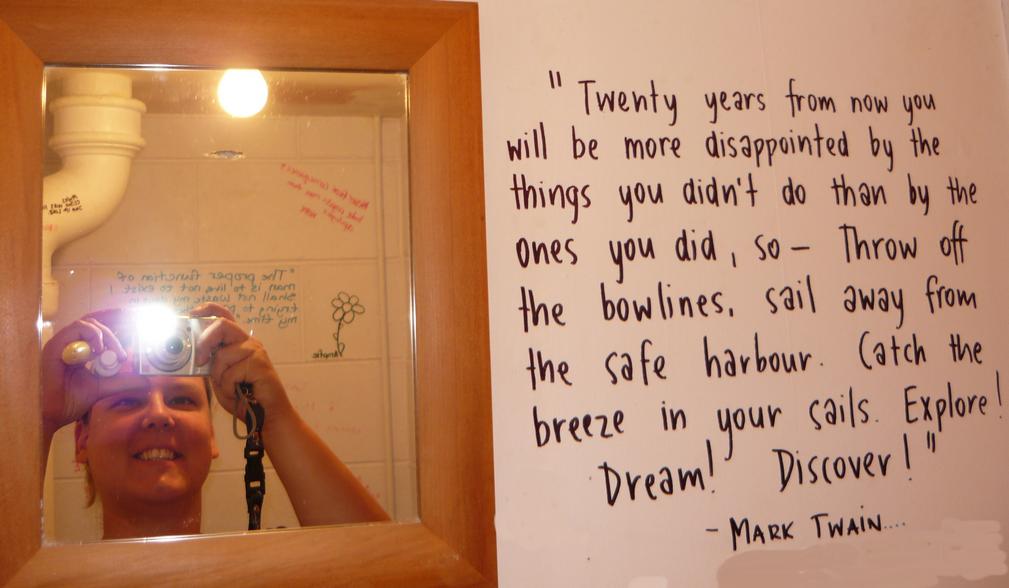 " Twenty years from now you
will be more disappointed by the
things you didn't do than by the
ones you did, so - Throw off
the bowlines, sail away from
the safe harbour. Catch the
breeze in your sails. Explore!
Dream! Discover!"
- MARK TWAIN....
"The proper function of
man is to live, not to exist. I
shall not waste my days in
trying to
my time"